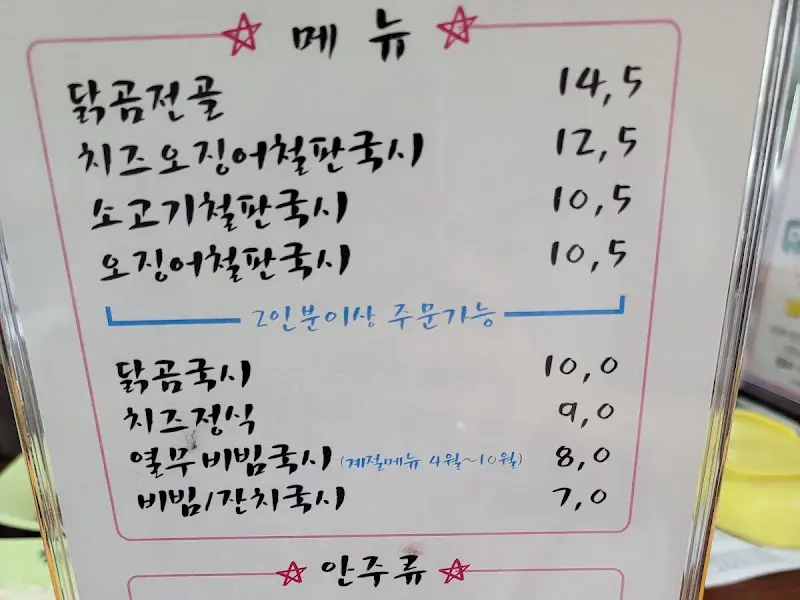 메뉴
닭곰전골 14,5
치즈오징어철판국시 12,5
소고기철판국시 10,5
오징어철판국시 10,5
2인분이상 주문가능
닭곰국시 10,0
치즈정식 9,0
열무비빔국시 (계절메뉴 4월~10월) 8,0
비빔/잔치국시 7,0
안주류